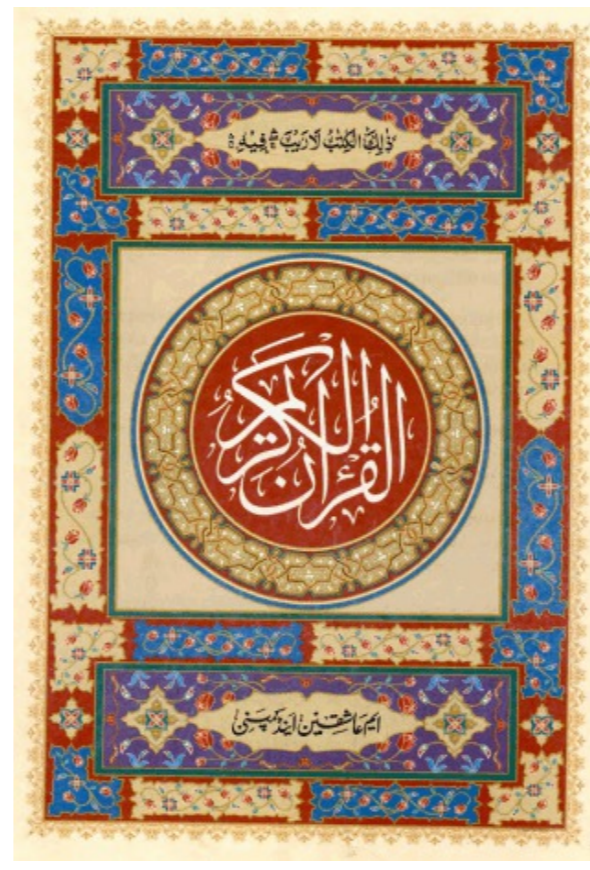 ذٰلِكَ الۡكِتٰبُ لَا رَيۡبَ ۛ فِيۡهِ ۛ
القرآن الكريم
ایم عاشقین اینڈ کمپنی